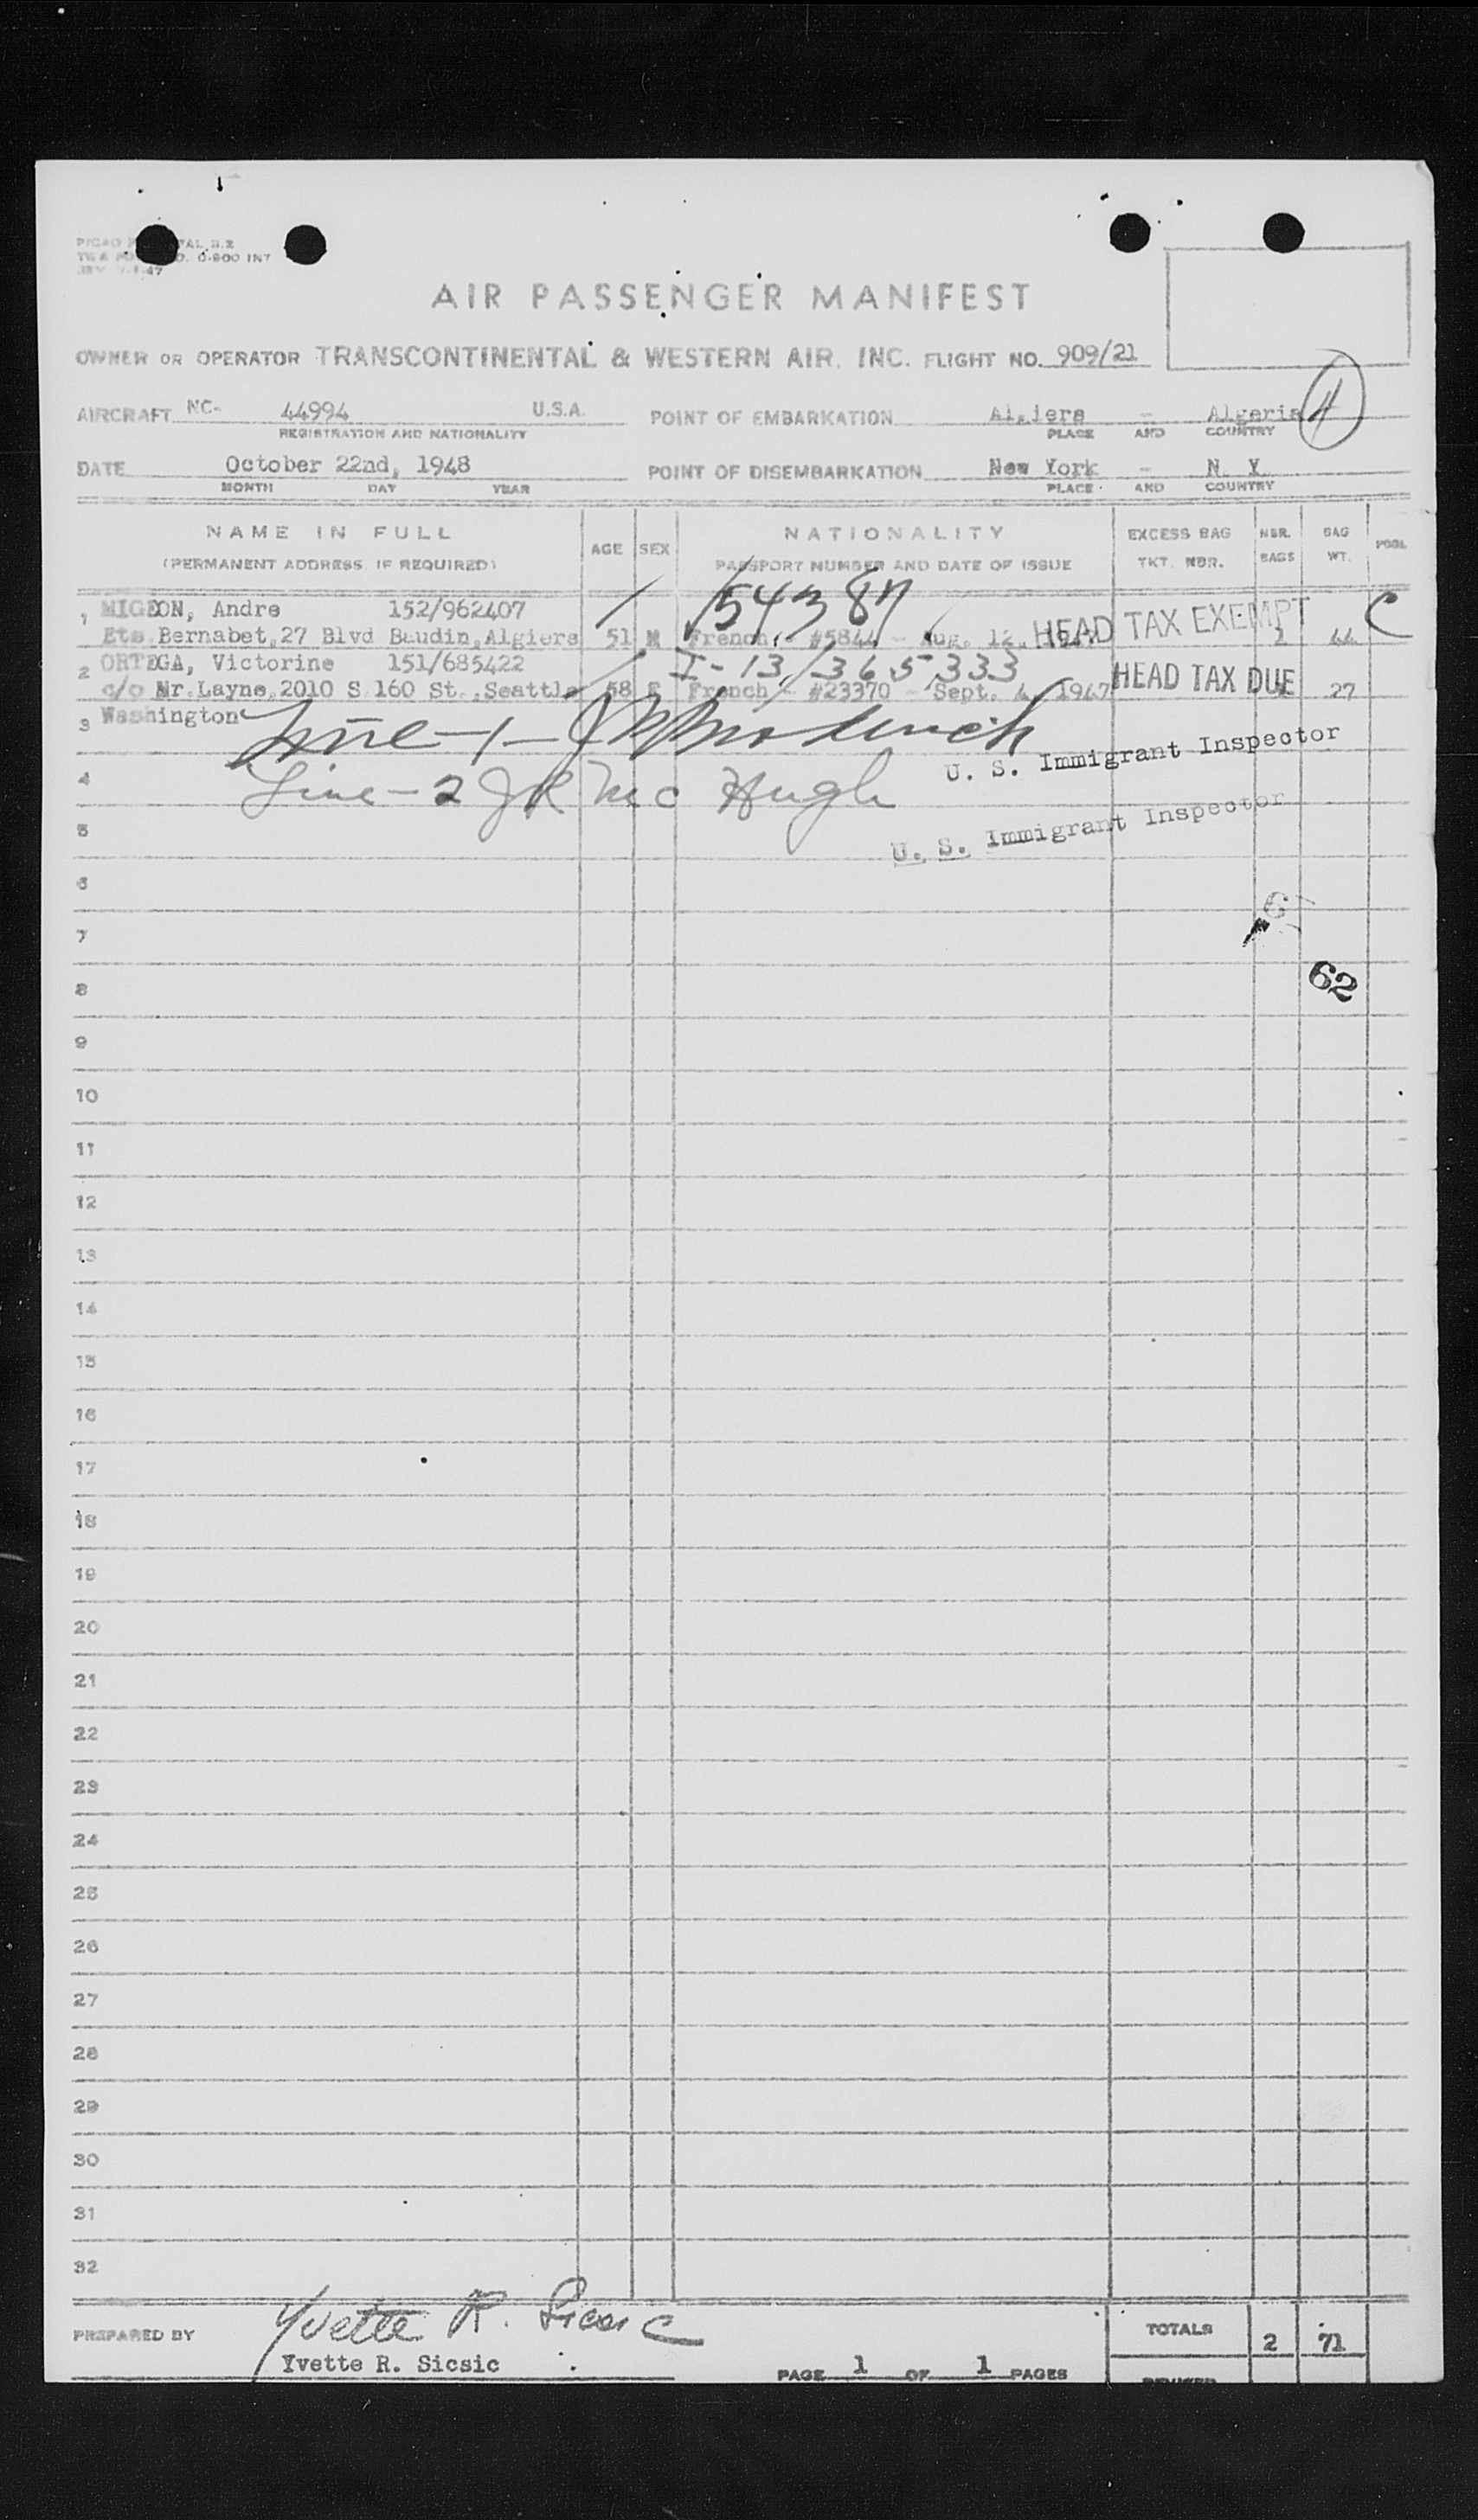 AIR PASSENGER MANIFEST
OWNER OR OPERATOR TRANSCONTINENTAL & WESTERN AIR, INC. FLIGHT NO. 909/21
AIRCRAFT NC- 44994 U.S.A. POINT OF EMBARKATION Algiers - Algeria
REGISTRATION AND NATIONALITY PLACE AND COUNTRY
DATE October 22nd, 1948 POINT OF DISEMBARKATION New York - N Y
MONTH DAY YEAR PLACE AND COUNTRY
NAME IN FULL AGE SEX NATIONALITY EXCESS BAG NBR. BAG POOL
(PERMANENT ADDRESS, IF REQUIRED) PASSPORT NUMBER AND DATE OF ISSUE TKT. NBR. BAGS WT.
1 MIGEON, Andre 152/962407
Ets Bernabet, 27 Blvd Baudin, Algiers 51 M French - #5844 - Aug. 12, HEAD TAX EXEMPT 44 C
2 ORTEGA, Victorine 151/685422 I-13/365333
c/o Mr. Layne, 2010 S 160 St., Seattle 58 F French - #23370 - Sept. 4, 1947 HEAD TAX DUE 27
3 Washington Line-1-
U. S. Immigrant Inspector
4 Line-2 JR McHugh
5 U. S. Immigrant Inspector
6
7
8 62
9
10
11
12
13
14
15
16
17
18
19
20
21
22
23
24
25
26
27
28
29
30
31
32
Yvette R. Sicsic
PREPARED BY TOTALS 2 71
Yvette R. Sicsic PAGE 1 OF 1 PAGES